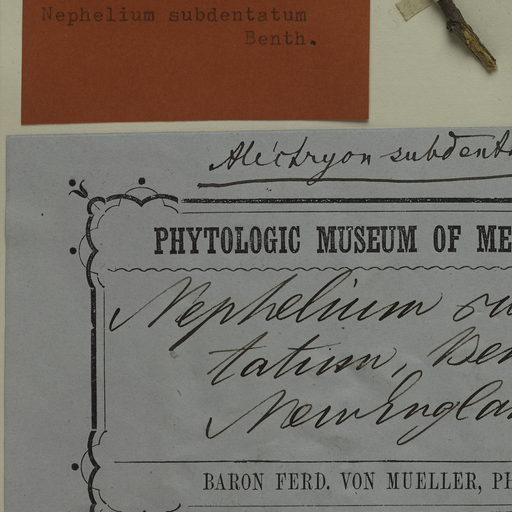 Nephelium subdentatum
Benth.
Alectryon subdent
PHYTOLOGIC MUSEUM OF ME
Nephelium su
tatum, Ben
New Engla
BARON FERD. VON MUELLER, PH